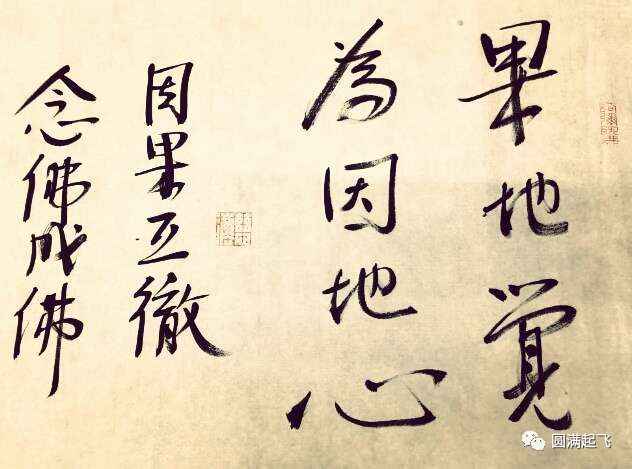 果地覺
為因地心
因果互徹
念佛成佛
圆满起飞